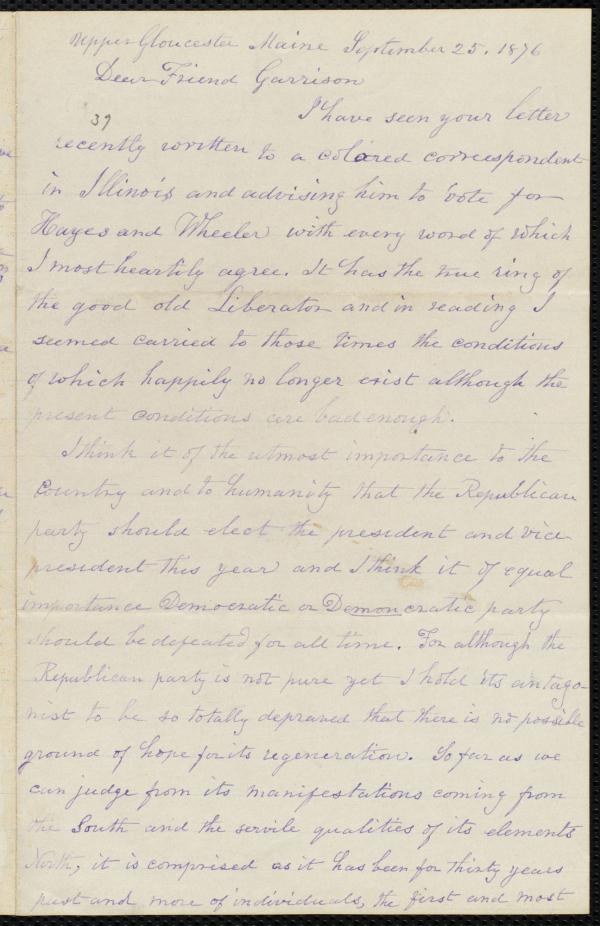 Upper Gloucester Maine September 25. 1876
Dear Friend Garrison
39
I have seen your letter
recently written to a colored correspondent
in Illinois and advising him to vote for
Hayes and Wheeler with every word of which
I most heartily agree. It has the true ring of
the good old Liberator and in reading I
seemed carried to those times the conditions
of which happily no longer exist although the
present conditions are bad enough.
I think it of the utmost importance to the
Country and to humanity that the Republican
party should elect the president and vice
president this year and I think it of equal
importance Democratic or Demoncratic party
should be defeated for all time. For although the
Republican party is not pure yet I hold its antago-
nist to be so totally depraved that there is no possible
ground of hope for its regeneration. So far as we
can judge from its manifestations coming from
the South and the servile qualities of its elements
North, it is comprised as it has been for thirty years
past and more of individuals, the first and most